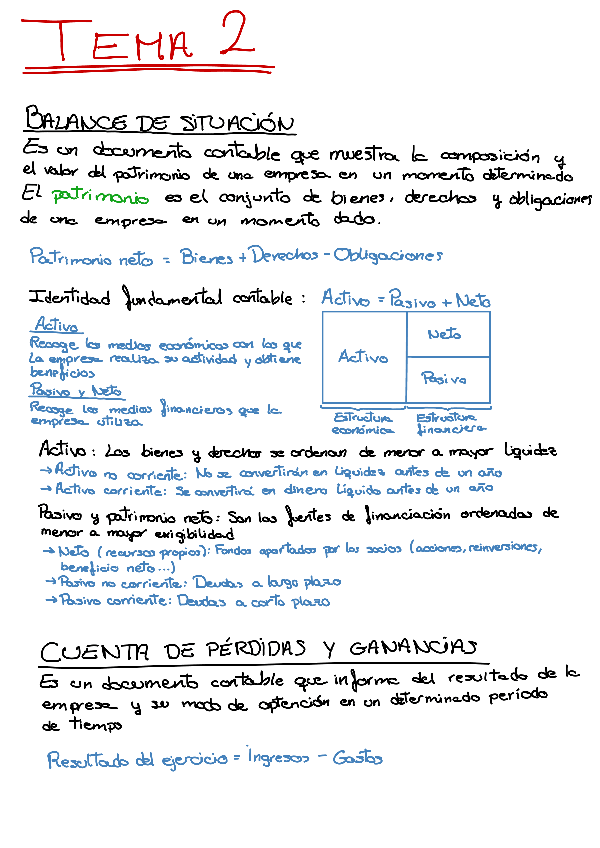 TEMA 2
BALANCE DE SITUACIÓN
Es un documento contable que muestra la composición y
el valor del patrimonio de una empresa en un momento determinado
El patrimonio es el conjunto de bienes, derechos y obligaciones
de una empresa en un momento dado.
Patrimonio neto = Bienes + Derechos - Obligaciones
Identidad fundamental contable : Activo = Pasivo + Neto
Activo
Recoge los medios económicos con los que
la empresa realiza su actividad y obtiene
beneficios
Pasivo y Neto
Recoge los medios financieros que la
empresa utiliza
Activo
Neto
Pasivo
Estructura
económica
Estructura
financiera
Activo : Los bienes y derechos se ordenan de menor a mayor liquidez
→ Activo no corriente: No se convertirán en liquidez antes de un año
→ Activo corriente: Se convertirá en dinero líquido antes de un año
Pasivo y patrimonio neto: Son las fuentes de financiación ordenadas de
menor a mayor exigibilidad
→ Neto (recursos propios): Fondos aportados por los socios (acciones, reinversiones,
beneficio neto...)
→ Pasivo no corriente: Deudas a largo plazo
→ Pasivo corriente: Deudas a corto plazo
CUENTA DE PÉRDIDAS Y GANANCIAS
Es un documento contable que informa del resultado de la
empresa y su modo de optención en un determinado período
de tiempo
Resultado del ejercicio = Ingresos - Gastos